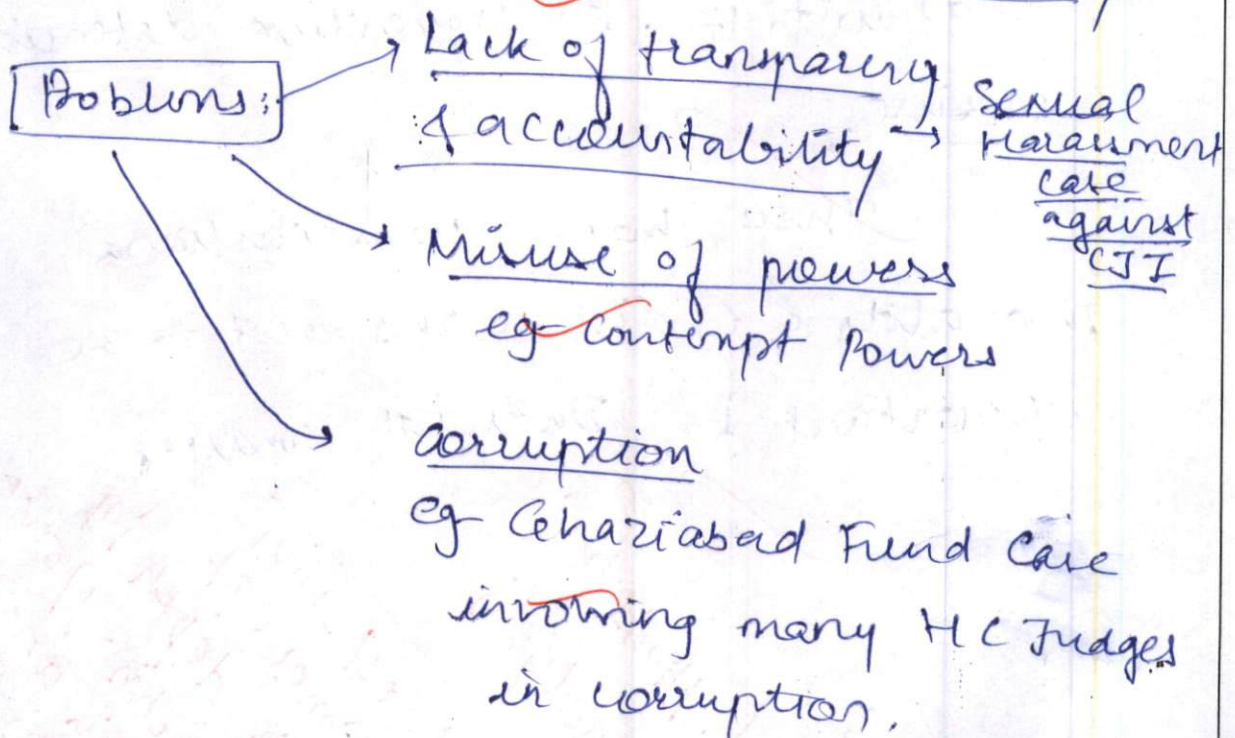 Problems:
Lack of transparency
& accountability → Sexual
Harassment
case
against
CJI
Misuse of powers
eg- Contempt Powers
Corruption
eg Ghaziabad Fund Case
involving many HC Judges
in corruption.